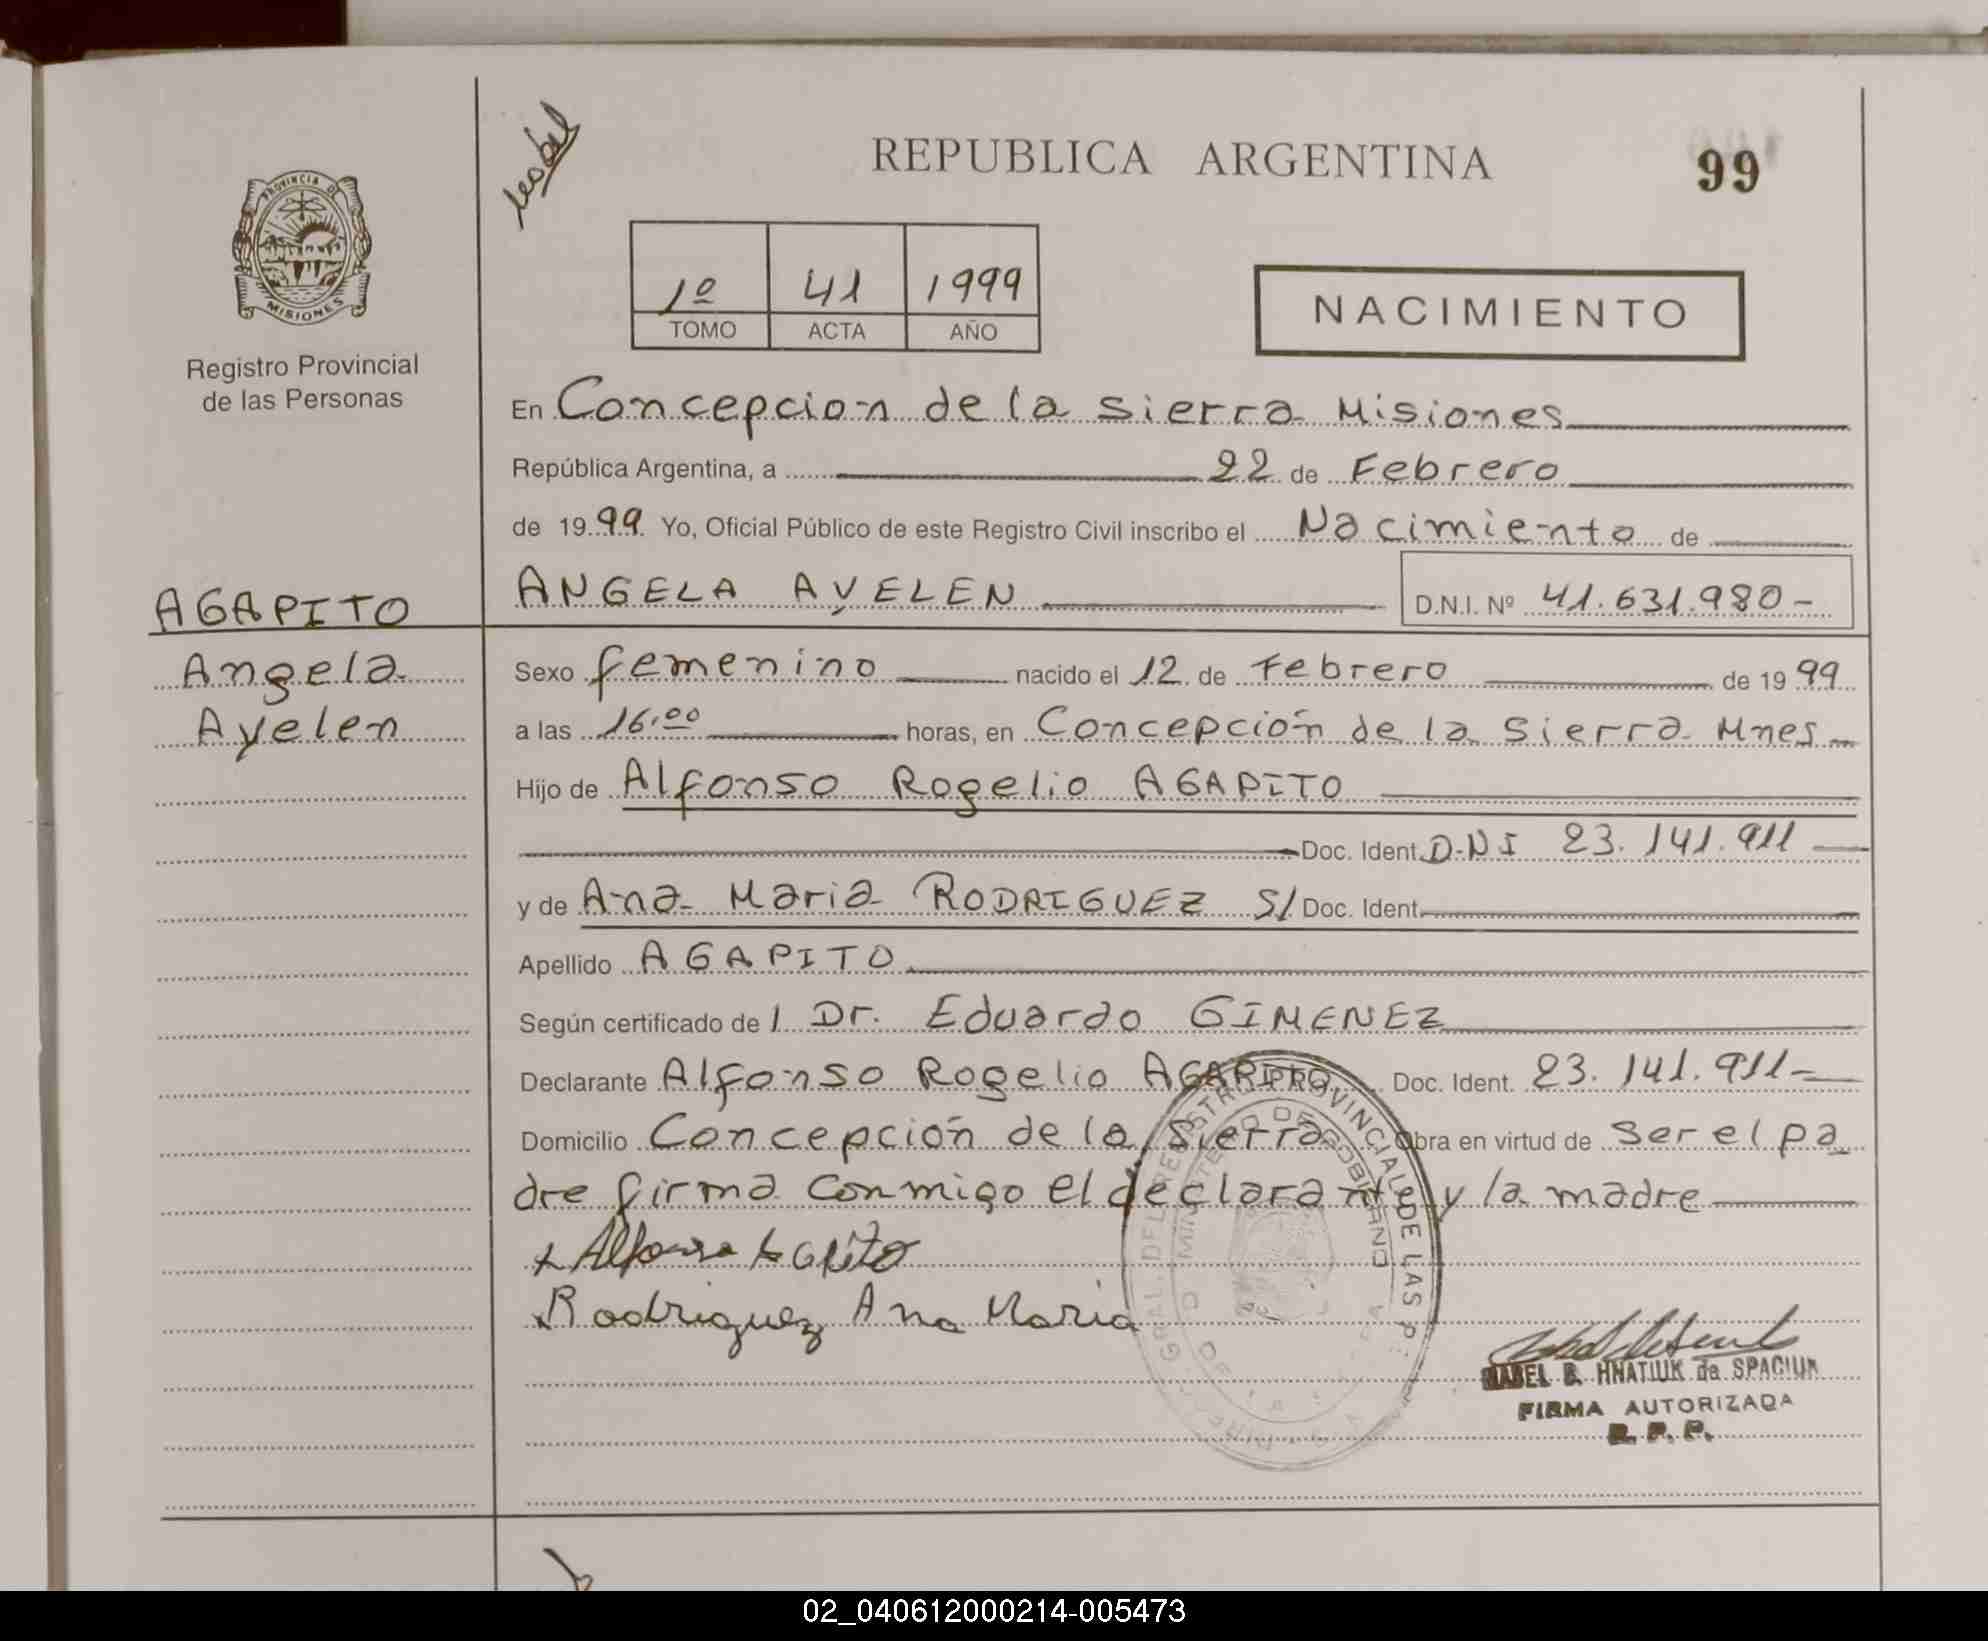 REPUBLICA ARGENTINA
99
PROVINCIA DE
MISIONES
Registro Provincial
de las Personas
1º 41 1999
TOMO ACTA AÑO
NACIMIENTO
En Concepcion de la Sierra Misiones
República Argentina, a 22 de Febrero
de 1999 Yo, Oficial Público de este Registro Civil inscribo el Nacimiento de
AGAPITO
ANGELA AYELEN D.N.I. Nº 41.631.980-
Angela
Ayelen
Sexo femenino nacido el 12 de Febrero de 1999
a las 16.00 horas, en Concepción de la Sierra Mnes
Hijo de Alfonso Rogelio AGAPITO
Doc. Ident. D.N I 23.141.911
y de Ana Maria RODRIGUEZ S/ Doc. Ident.
Apellido AGAPITO
Según certificado de / Dr. Eduardo GIMENEZ
Declarante Alfonso Rogelio AGAPITO Doc. Ident. 23.141.911-
Domicilio Concepción de la Sierra Obra en virtud de ser el pa
dre firma conmigo el declarante y la madre
x Alfonso Agapito
x Rodriguez Ana Maria
GRAL. DEL REGISTRO PROVINCIAL DE LAS PE
MINISTERIO DE GOBIERNO
B. HNATIUK de SPACIUK
FIRMA AUTORIZADA
R. P. P.
02_040612000214-005473